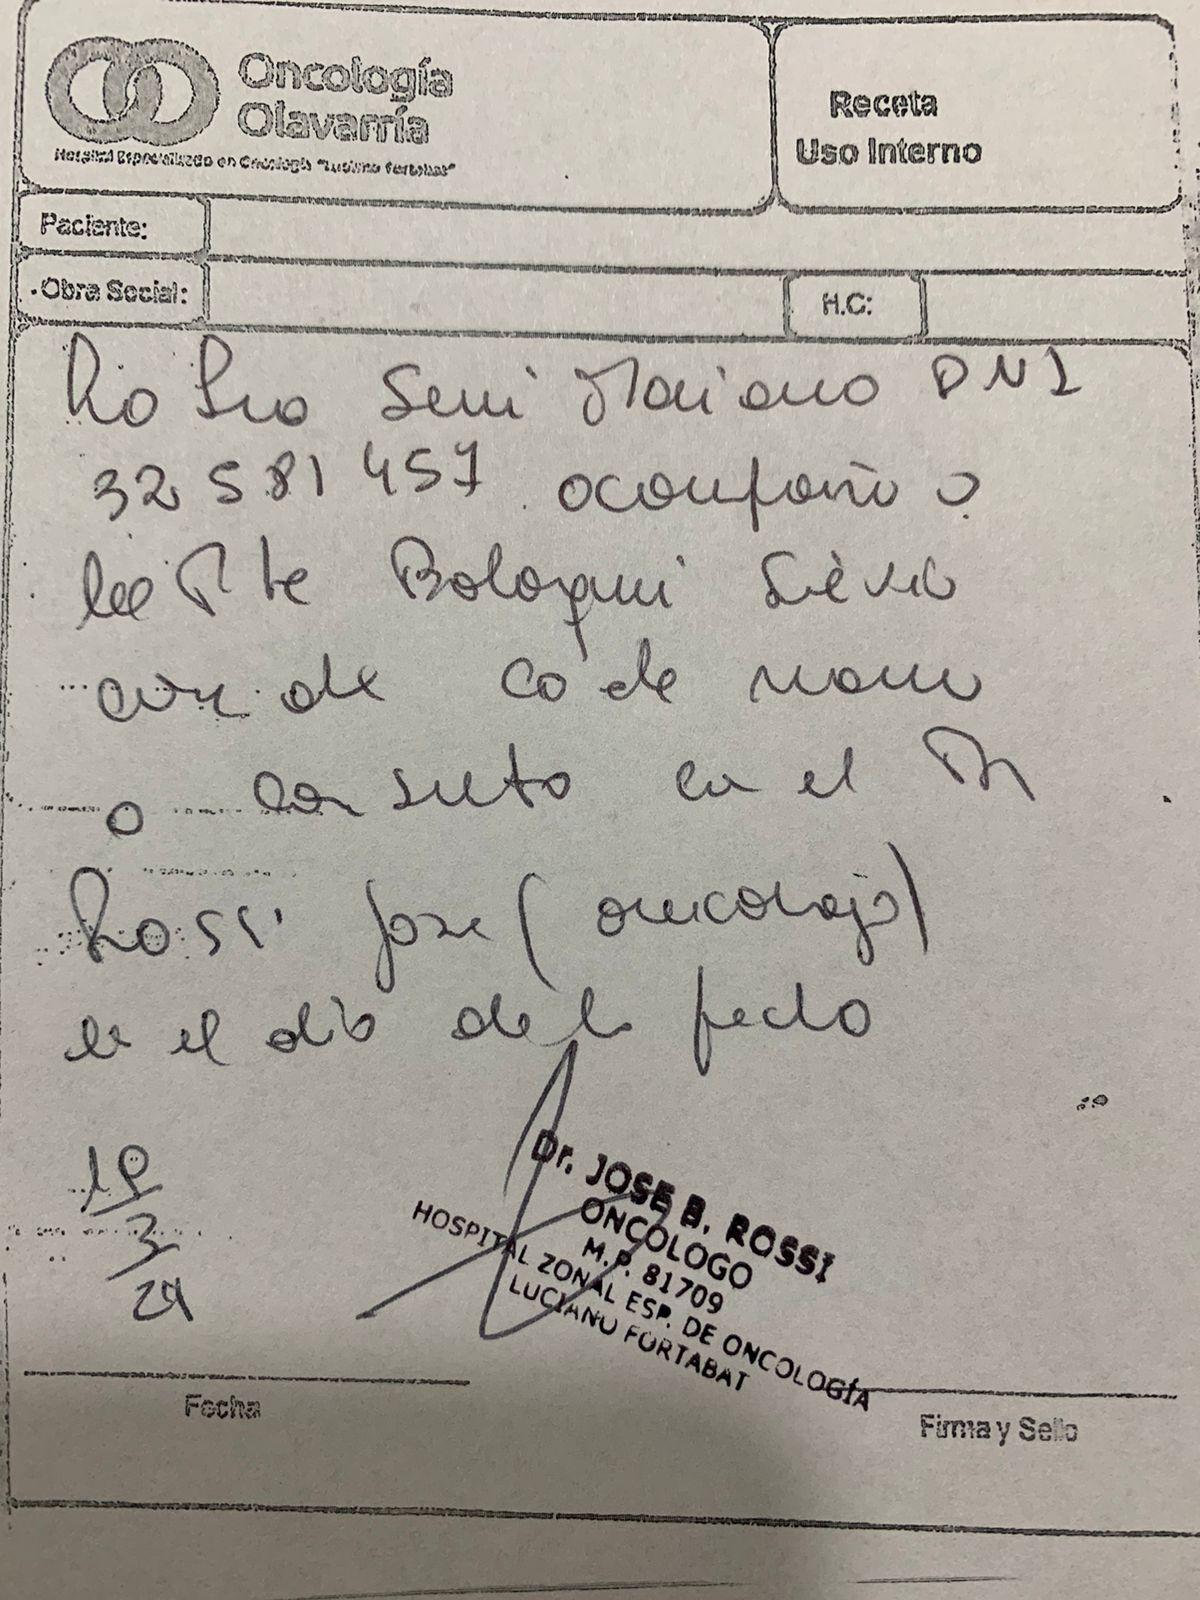 Oncología
Olavarría
Hospital Especializado en Oncología "Luciano Fortabat"
Receta
Uso Interno
Paciente:
Obra Social:
H.C:
DNI
32 581 457 acompaño a
la Pte
de Ca de mama
a consulta en el Dr
Rossi Jose (oncologo)
en el dia de la fecha
19
3
24
Dr. JOSE B. ROSSI
ONCOLOGO
M.P. 81709
HOSPITAL ZONAL ESP. DE ONCOLOGÍA
LUCIANO FORTABAT
Fecha
Firma y Sello